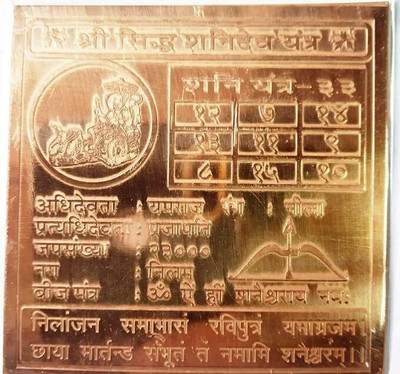 श्री सिद्ध शनिदेव यंत्र
शनि यंत्र - ३३
१२ ७ १४
१३ ११ ९
८ १५ १०
अधिदेवता : यमराज रंग : नीला
प्रत्यधिदेवता : प्रजापति
जपसंख्या : २३०००
नग : निलम
बीज मंत्र : ॐ ऐं ह्रीं शनैश्वराय नमः
निलांजन समाभासं रविपुत्रं यमाग्रजम्
छाया मार्तन्ड संभूतं तं नमामि शनैश्वरम्।।